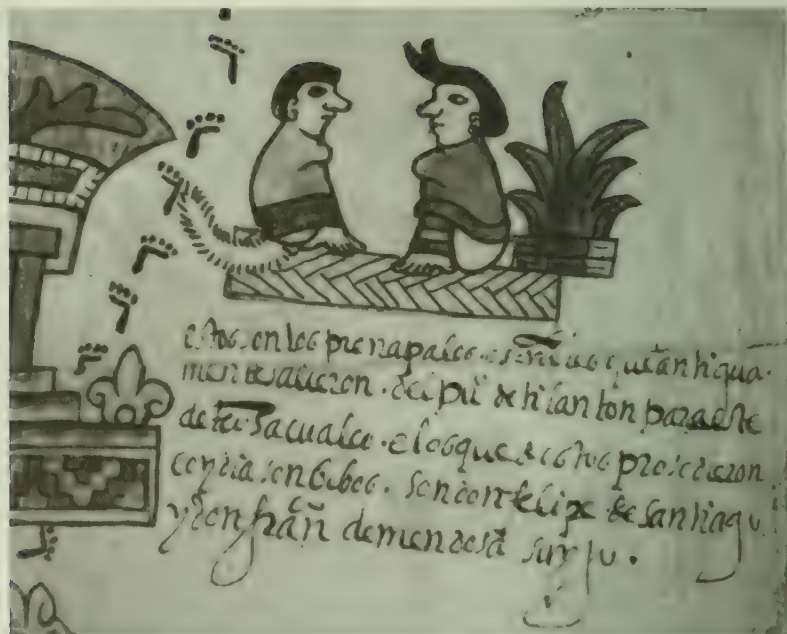 estos son los prençipales e señores que antigua
mente salieron del pu.º de tilanton para este
de teosacualco e los que destos proscedieron
y oy dia son bibos son don felipe de santiago
y don fran.co de mendosa su yjo.